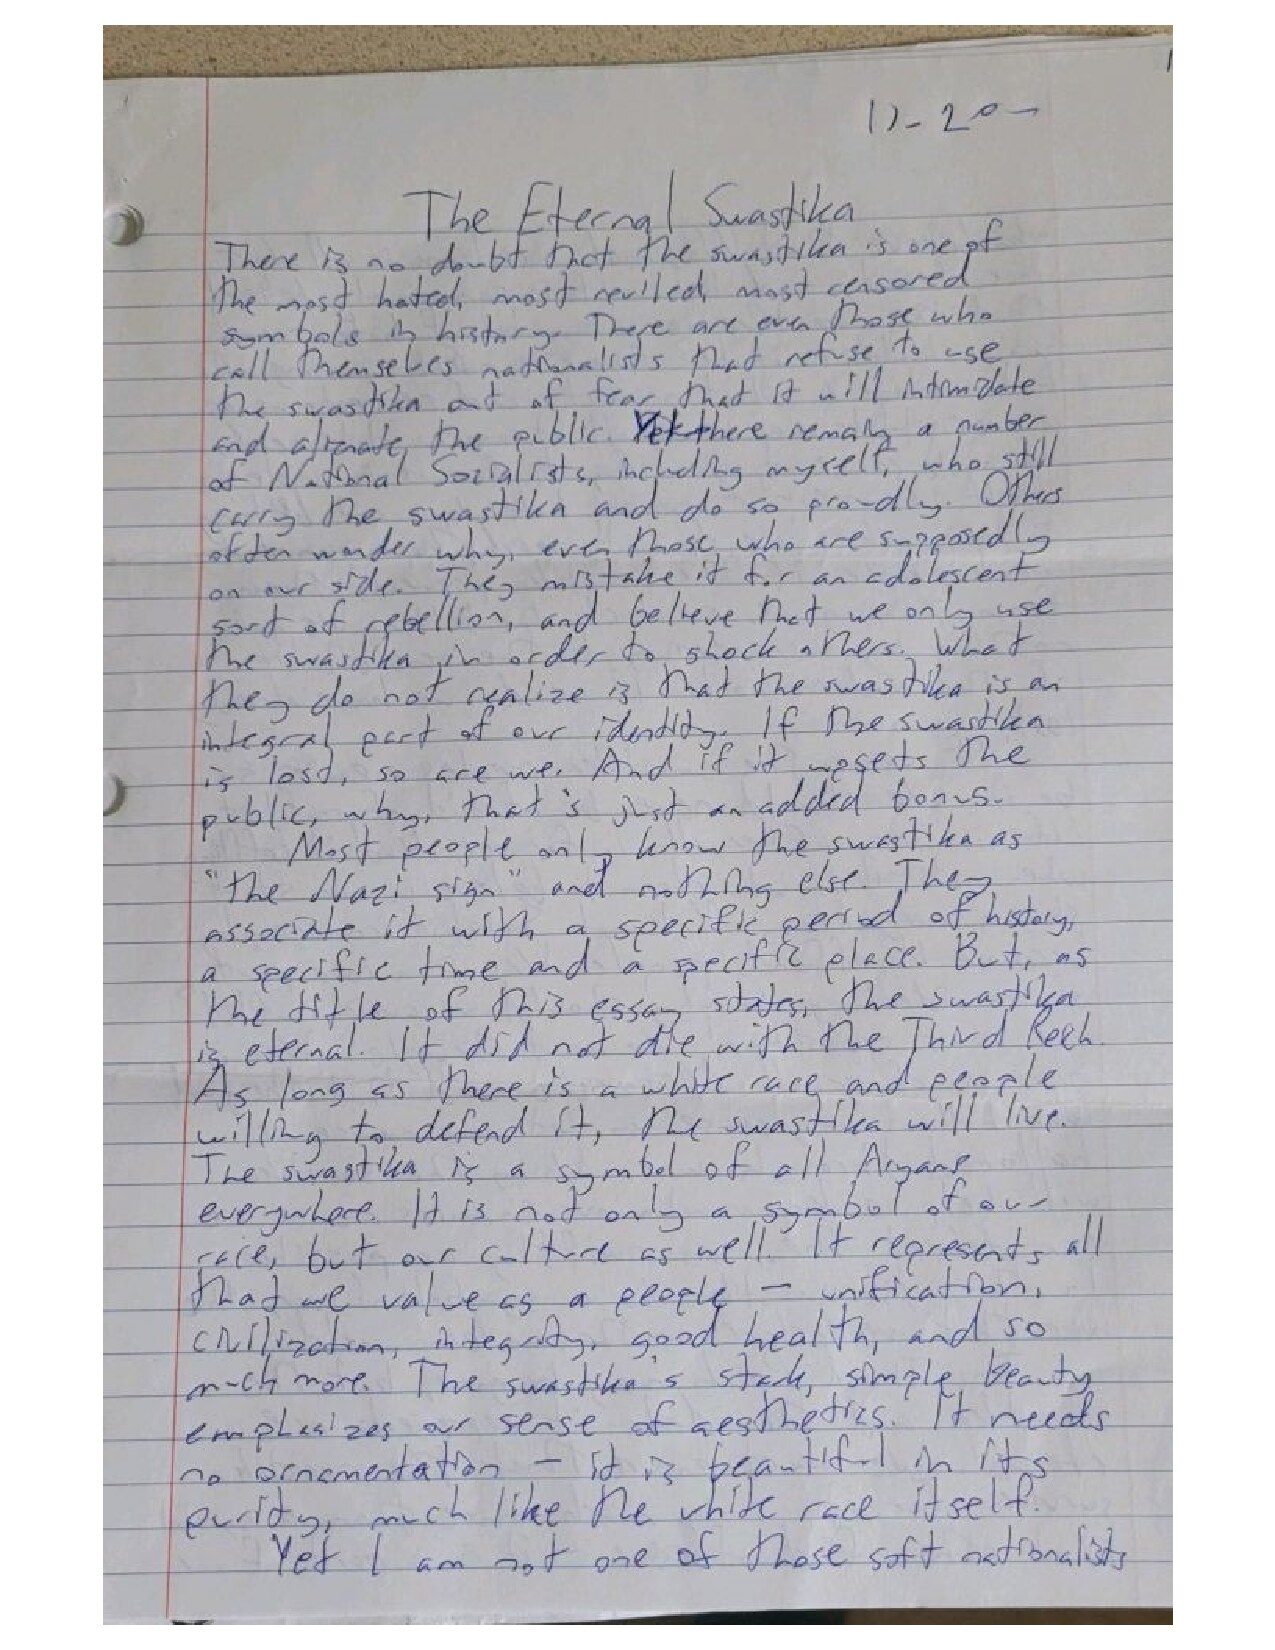 11-20-
The Eternal Swastika
There is no doubt that the swastika is one of
the most hated, most reviled, most censored
symbols in history. There are even those who
call themselves nationalists that refuse to use
the swastika out of fear that it will intimidate
and alienate the public. Yet there remain a number
of National Socialists, including myself, who still
carry the swastika and do so proudly. Others
often wonder why, even those who are supposedly
on our side. They mistake it for an adolescent
sort of rebellion, and believe that we only use
the swastika in order to shock others. What
they do not realize is that the swastika is an
integral part of our identity. If the swastika
is lost, so are we. And if it upsets the
public, why, that's just an added bonus.
Most people only know the swastika as
"the Nazi sign" and nothing else. They
associate it with a specific period of history,
a specific time and a specific place. But, as
the title of this essay states, the swastika
is eternal. It did not die with the Third Reich.
As long as there is a white race and people
willing to defend it, the swastika will live.
The swastika is a symbol of all Aryans
everywhere. It is not only a symbol of our
race, but our culture as well. It represents all
that we value as a people – unification,
civilization, integrity, good health, and so
much more. The swastika's stark, simple beauty
emphasizes our sense of aesthetics. It needs
no ornamentation – it is beautiful in its
purity, much like the white race itself.
Yet I am not one of those soft nationalists